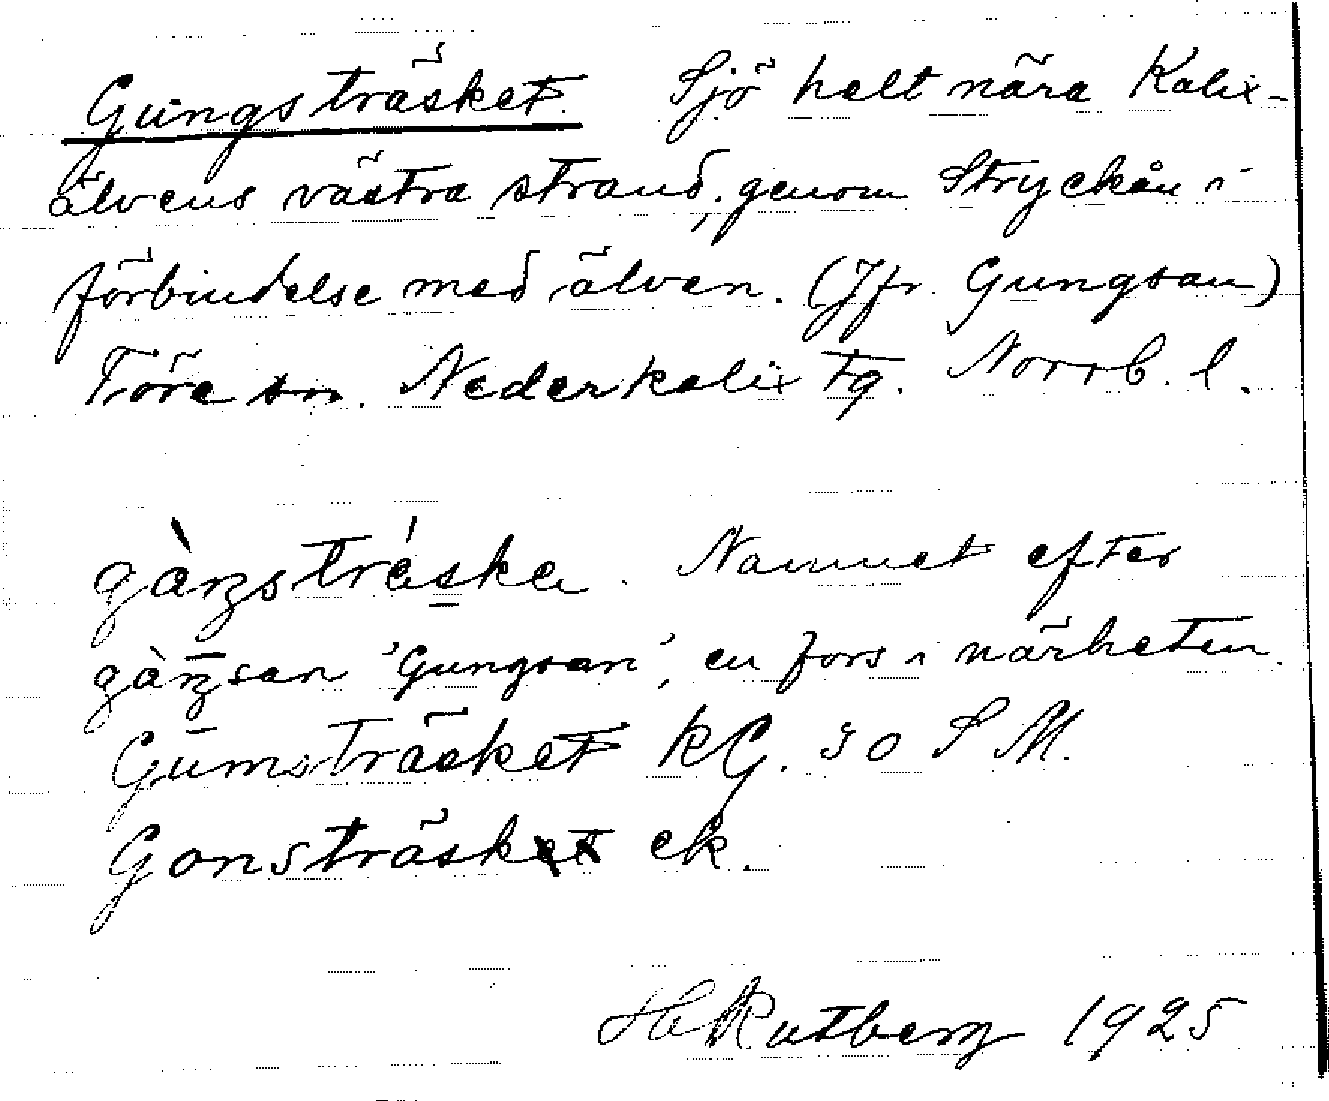 Gungsträsket. Sjö helt nära Kalix-
älvens västra strand, genom Stryckån i
förbindelse med älven. (Jfr. Gungsan)
Töre sn. Nederkalix tg. Norrb. l.
gàŋsträ́ska. Namnet efter
gàŋ̄san 'Gungsan', en fors i närheten.
Gumsträsket kG. 30 S M.
Gonsträsket ek.
H Rutberg 1925